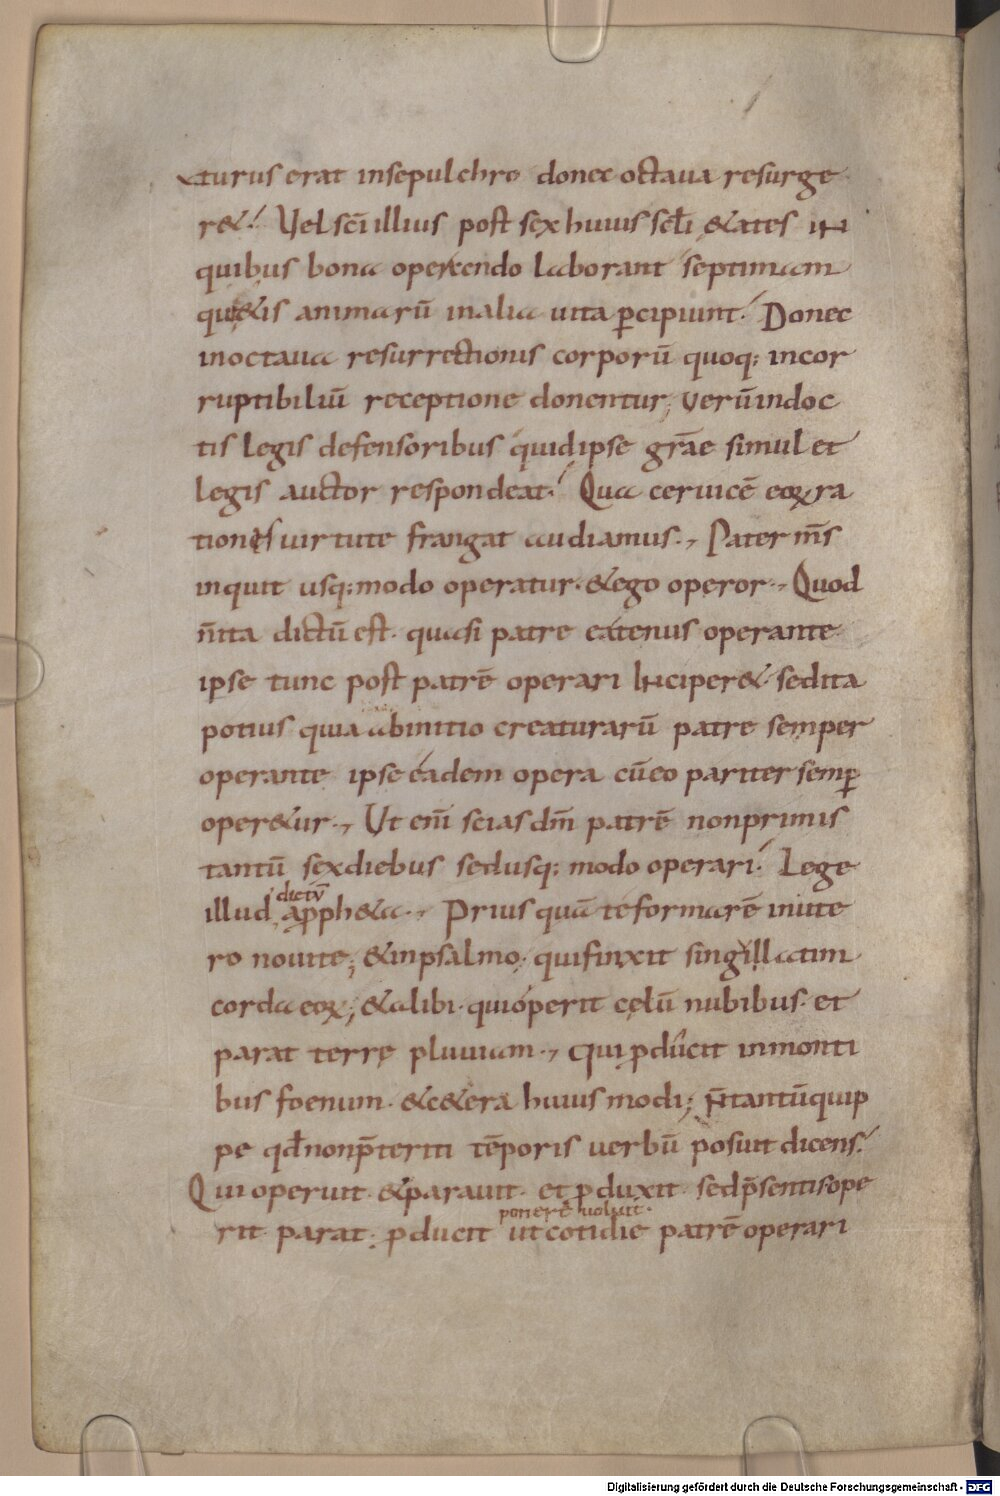 turus erat insepulchro donec octaua resurge
r&. Uel sc̄i illius post sex huius sc̄li &ates in
quibus bona operando laborant septimam
qui&is animarū inalia uita ꝑcipiunt. Donec
inoctaua resurrectionis corporū quoq; incor
ruptibiliū receptione donentur; Verū indoc
tis legis defensoribus quid ipse grāe simul et
legis auctor respondeat. Qua ceruicē eoꝝ ra
tionis uirtute frangat audiamus., Pater m̄s
inquit usq; modo operatur. &ego operor., Quod
n̄ ita dictū est. quasi patre eatenus operante
ipse tunc post patrē operari inciper&. sed ita
potius quia abinitio creaturarū patre semper
operante ipse eadem opera cū eo pariter semꝑ
oper&ur., Ut eni̅ scias dm̄ patrē non primis
tantū sex diebus sed usq; modo operari. Lege
dictū
illud ap̱ph&a., Prius quā te formarē inute
ro noui te; &inpsalmo. qui finxit singillatim
corda eoꝝ; &alibi. qui operit cęlū nubibus. et
parat terrę pluuiam., qui ꝓducit inmonti
bus foenum. &c&era huius modi; n̄ tantū quip
pe qd̄ non p̄teriti tēporis uerbū posuit dicens.
Qui operuit. &parauit. et ꝓduxit. sed p̄sentis ope
ponere uoluit.
rit. parat. ꝓducit ut cotidie patrē operari
Digitalisierung gefördert durch die Deutsche Forschungsgemeinschaft - DFG